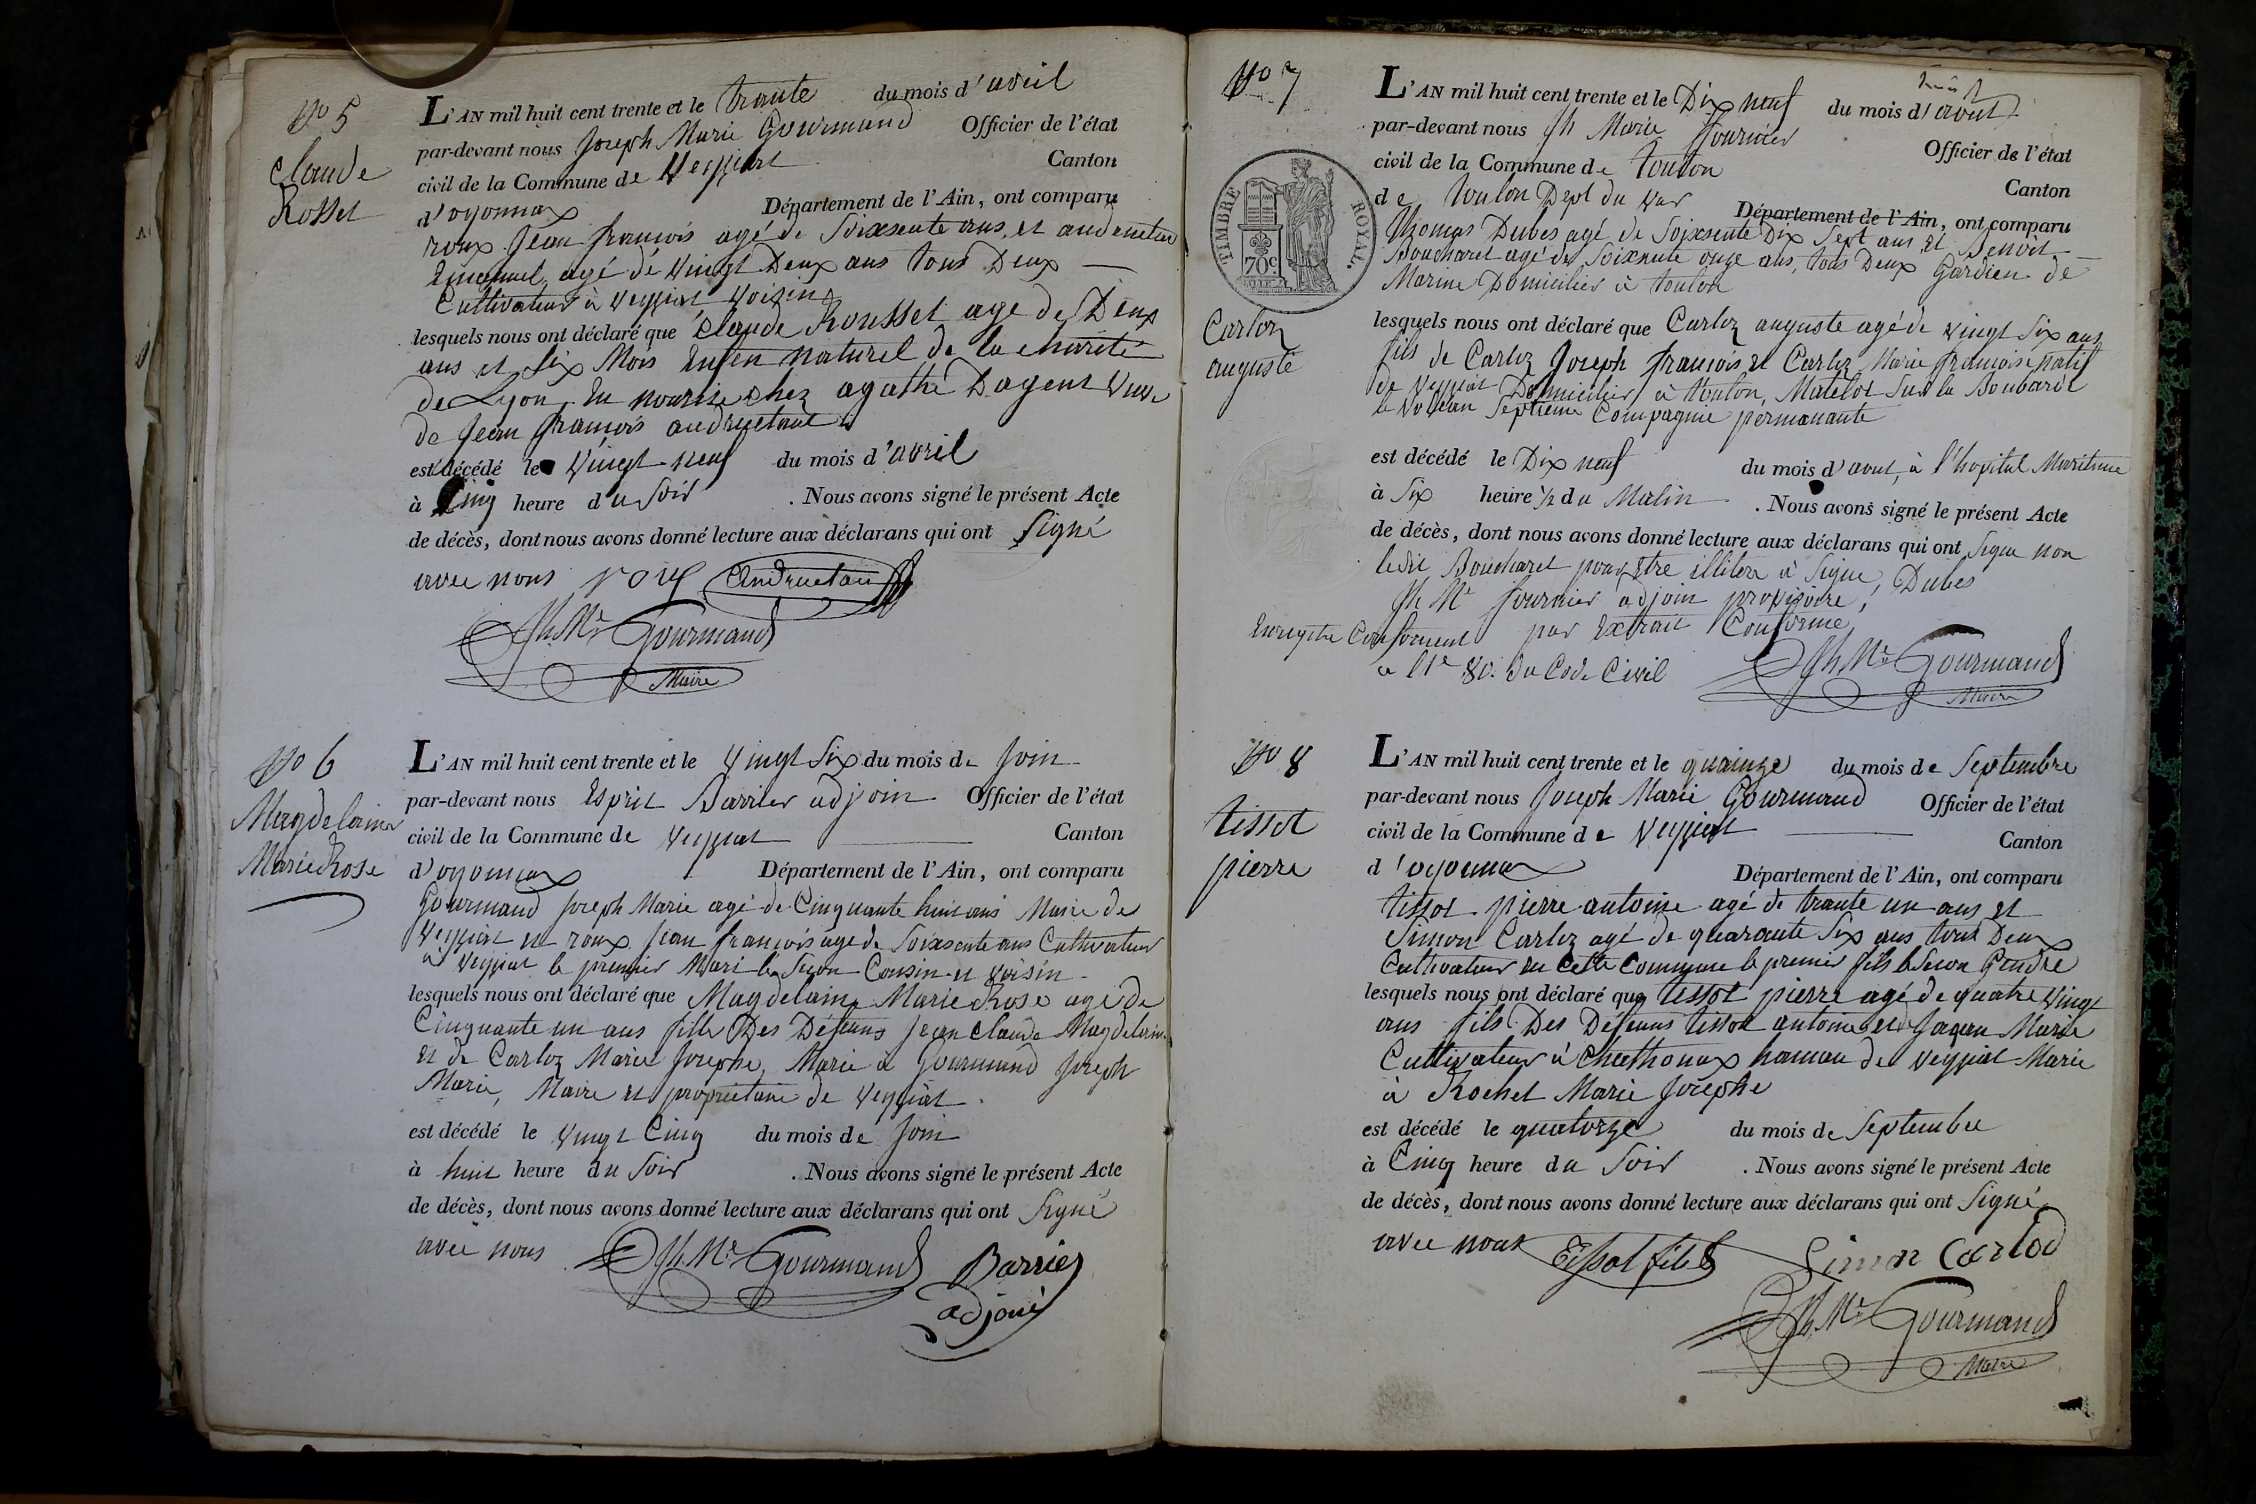 No 5
Claude
Rosset
L'AN mil huit cent trente et le trante du mois d'avril
par-devant nous Joseph Marie Gourmand Officier de l'état
civil de la Commune de Veyziat Canton
d'oyonnax Département de l'Ain, ont comparu
roux Jean françois agé de Soixsente ans et andruetan
Emanuel agé de vingt Deux ans tous Deux
Cultivateur à veyziat voizin
lesquels nous ont déclaré que Claude Rousset age de Deux
ans et Six Mois Enfen naturel de la charité
de Lyon En nourise chez agathe Dagent Veuve
de Jean françois andruetant
est décédé le vingt neuf du mois d'avril
à Cinq heure du Soir . Nous avons signé le présent Acte
de décès, dont nous avons donné lecture aux déclarans qui ont Signé
avec nous roux Andruetan
Jh Me Gourmand
Maire
No 6
Magdelaine
Marie Rose
L'AN mil huit cent trente et le vingt Six du mois de Join
par-devant nous Esprit Barrier adjoin Officier de l'état
civil de la Commune de veyziat Canton
d'oyonnax Département de l'Ain, ont comparu
Gourmand Joseph Marie agé de Cinquante huit ans Maire de
Veyziat et roux Jean françois age de Soixsente ans Cultivateur
à veyziat le premier Mari le Secon Cousin et voisin
lesquels nous ont déclaré que Magdelaine Marie Rose age de
Cinquante un ans fille Des Defeuns Jean Claude Magdelaine
et de Carloz Marie Josephe, Marie a Gourmand Joseph
Marie, Maire et propriétaire de Veyziat
est décédé le vingt Cinq du mois de Join
à huit heure du Soir . Nous avons signé le présent Acte
de décès, dont nous avons donné lecture aux déclarans qui ont Signé
avec nous Jh Me Gourmand Barrier
adjoin
No 7
TIMBRE ROYAL.
70c
Carloz
auguste
L'AN mil huit cent trente et le Dix neuf du mois d'aout
par-devant nous Jh Marie fournier Officier de l'état
civil de la Commune de toulon Canton
de toulon Dept du Var Département de l'Ain, ont comparu
Thomas Dubes agé de Soixsente Dix Sept ans et Benoit
Boucharet agé de Soixente onze ans, tous Deux Gardien de
Marine Domicilier à toulon
lesquels nous ont déclaré que Carloz auguste agé de vingt Six ans
fils de Carloz Joseph françois et Carloz Marie françoise natif
de Veyziat Domicilier à toulon, Matelot Sur la Bonbarde
le Volcan Septieme Compagnie permanante
est décédé le Dix neuf du mois d'aout, à l'hopital Maritime
à Six heure 1/2 du Matin . Nous avons signé le présent Acte
de décès, dont nous avons donné lecture aux déclarans qui ont Signe non
ledit Boucharet pour Etre illitere à Signe, Dubes
Jh Me fournier adjoin provisoire,
Enregistre Conforment par Extrait Conforme,
a l'Ie 80. du Code Civil Jh Me Gourmand
Maire
No 8
tissot
pierre
L'AN mil huit cent trente et le quainze du mois de Septembre
par-devant nous Joseph Marie Gourmand Officier de l'état
civil de la Commune de Veyziat Canton
d'oyonnax Département de l'Ain, ont comparu
tissot pierre antoine agé de trante un ans et
Simon Carloz agé de quarante Six ans tous Deux
Cultivateur en Cette Commune le premier fils le Secon Gendre
lesquels nous ont déclaré que tissot pierre agé de quatre vingt
ans fils Des Défeuns tissot antoine et de Marie
Cultivateur à Chatthonax hamau de veyziat Marie
à Rochet Marie Josephe
est décédé le quatorze du mois de Septembre
à Cinq heure du Soir . Nous avons signé le présent Acte
de décès, dont nous avons donné lecture aux déclarans qui ont Signé
avec nous Tissot fils Simon Carlod
Jh Me Gourmand
Maire